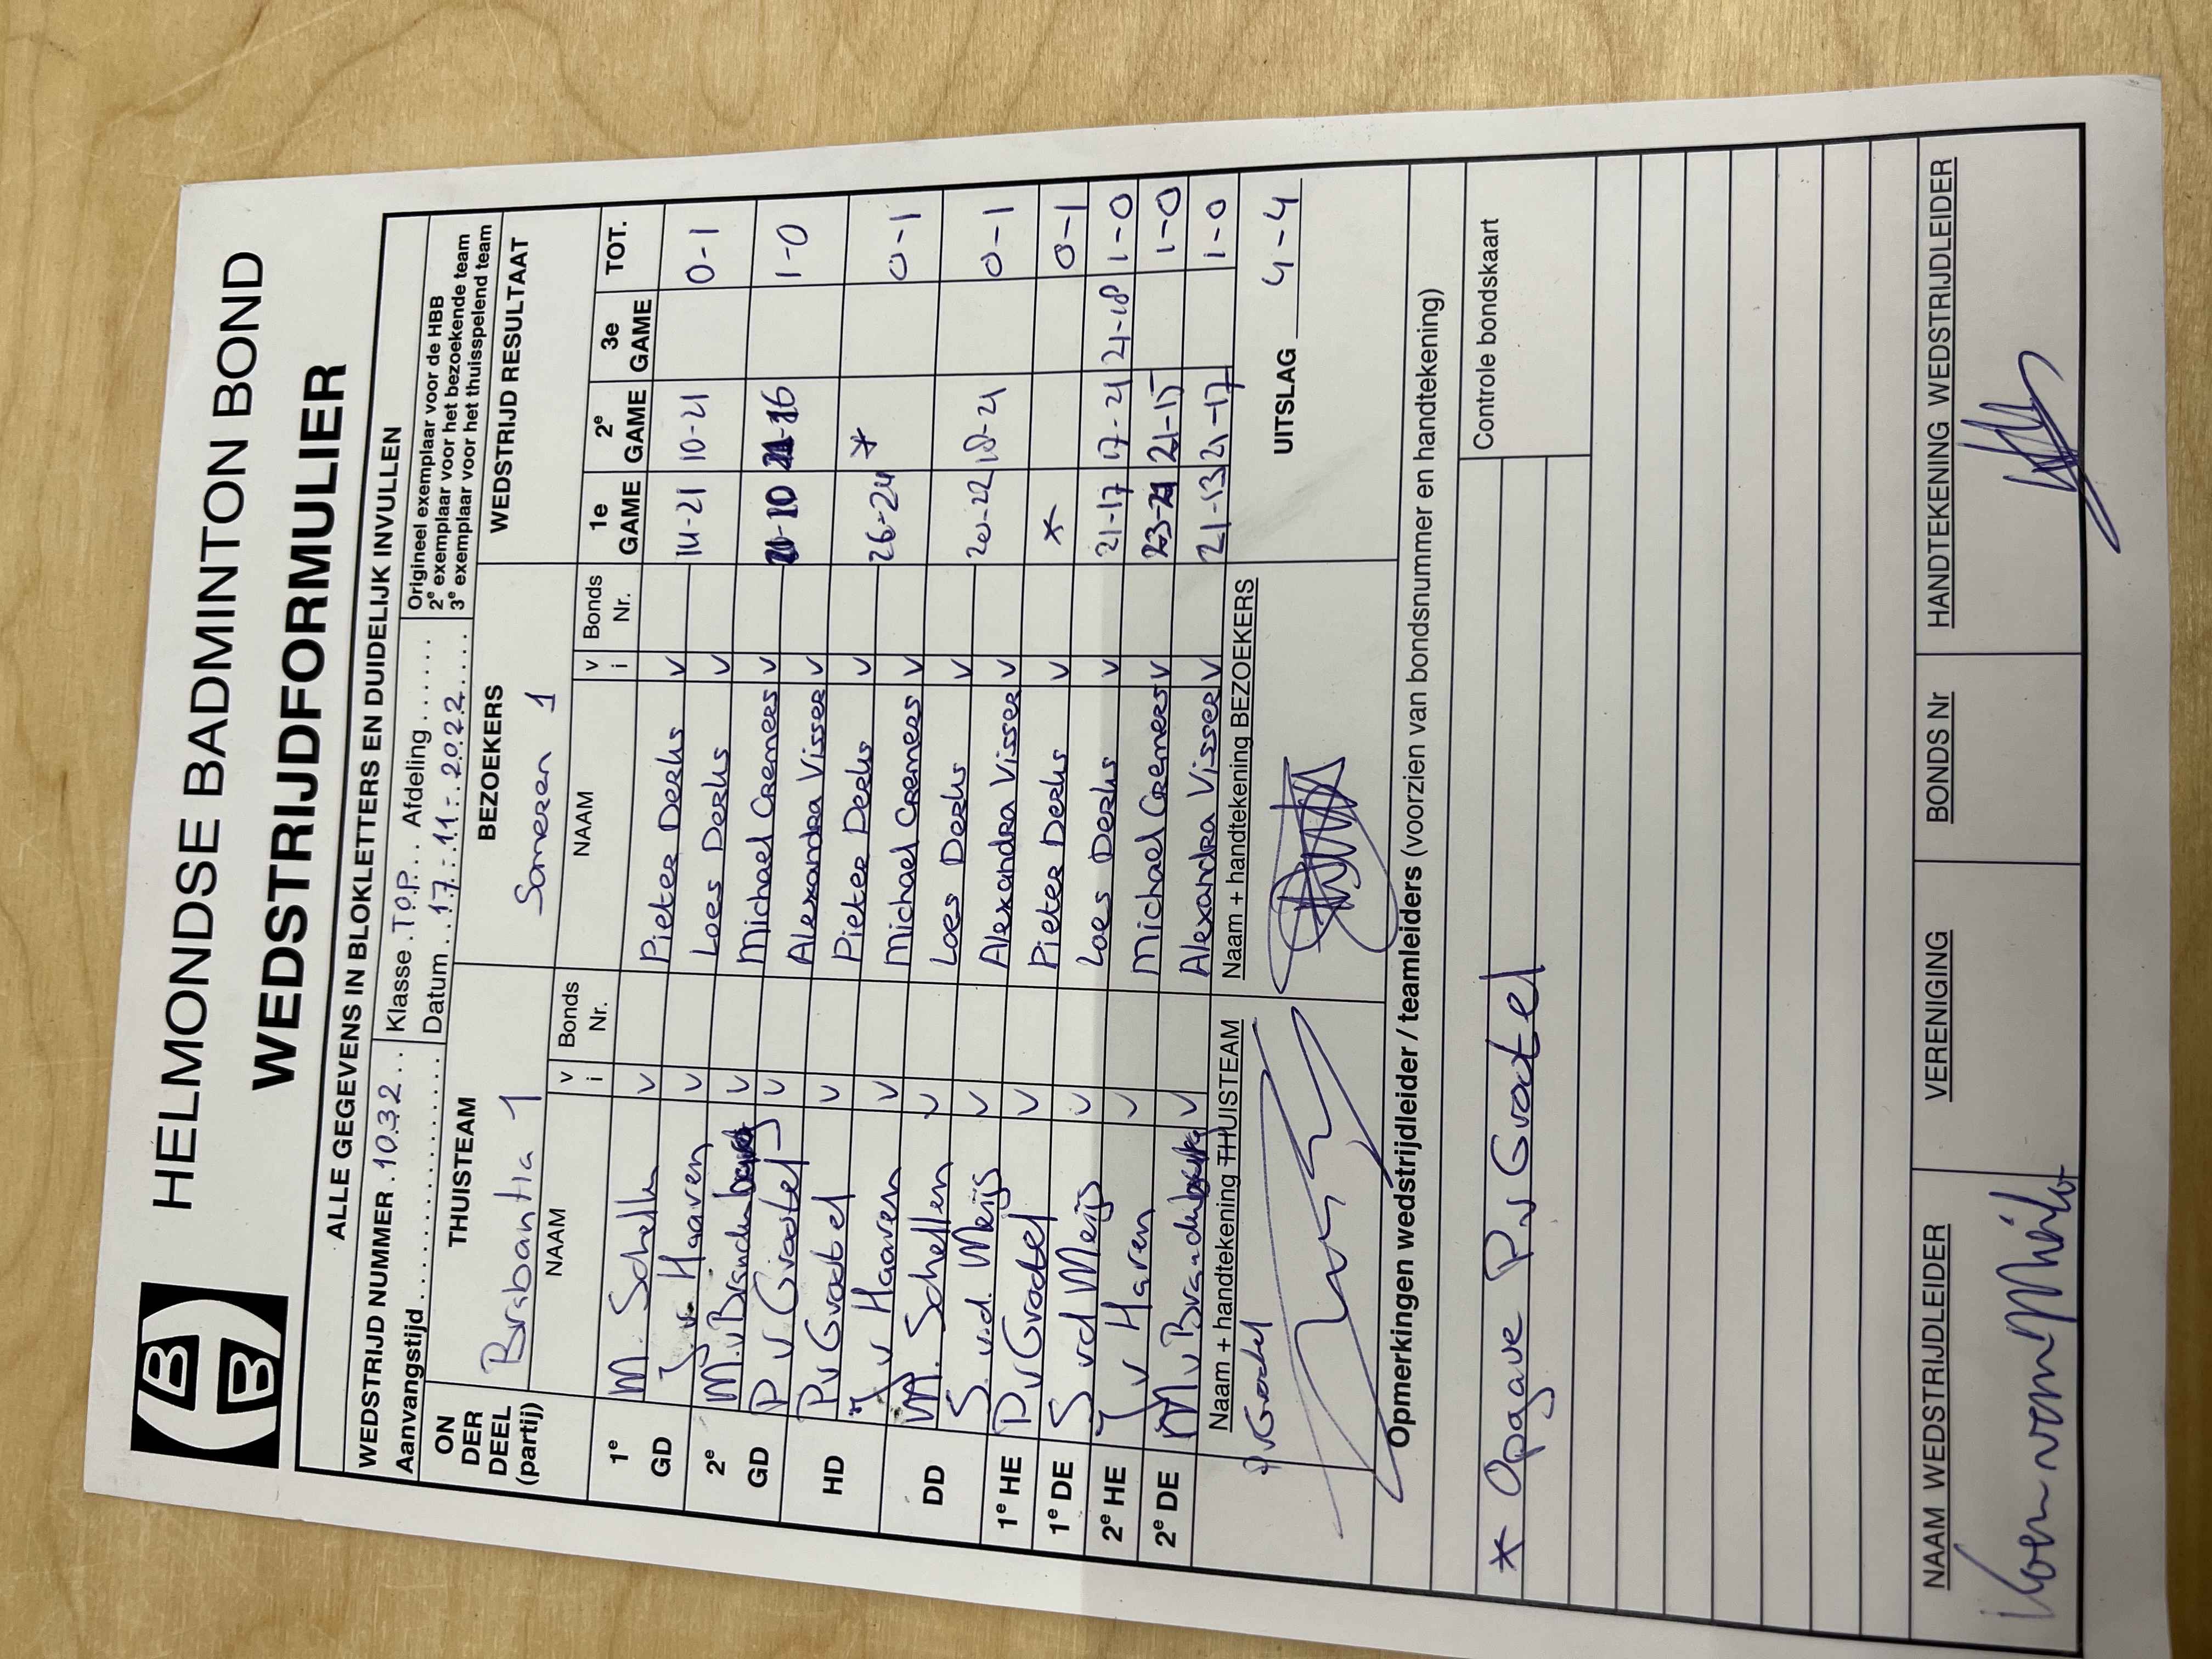 HELMONDSE BADMINTON BOND
WEDSTRIJDFORMULIER
HBB
ALLE GEGEVENS IN BLOKLETTERS EN DUIDELIJK INVULLEN
WEDSTRIJD NUMMER . 1032 . . Klasse . T.O.P. . . Afdeling . . . . . .
Origineel exemplaar voor de HBB
2e exemplaar voor het bezoekende team
3e exemplaar voor het thuisspelend team
Aanvangstijd . . . . . . . . . . . . . . . . . . . Datum . . 17 - 11 - 2022 . . . .
ON DER DEEL (partij) THUISTEAM BEZOEKERS WEDSTRIJD RESULTAAT
Brabantia 1 Someren 1
NAAM v i Bonds Nr. NAAM v i Bonds Nr. 1e GAME 2e GAME 3e GAME TOT.
1e GD M. Schellen v Pieter Derks v 14-21 10-21 0-1
J. v Haaren v Loes Derks v
2e GD M. v Brandenburg v Michael Cremers v 21-10 21-16 1-0
P v Grootel v Alexandra Visser v
HD P v Grootel v Pieter Derks v 26-24 * 0-1
J v Haaren v Michael Cremers v
DD M. Schellen v Loes Derks v 20-22 18-21 0-1
S. v.d. Meijs v Alexandra Visser v
1e HE P v Grootel v Pieter Derks v * 0-1
1e DE S vd Meijs v Loes Derks v 21-17 17-21 21-18 1-0
2e HE J v Haren v Michael Cremers v 23-21 21-15 1-0
2e DE M v Brandenburg v Alexandra Visser v 21-13 21-17 1-0
Naam + handtekening THUISTEAM Naam + handtekening BEZOEKERS UITSLAG 4-4
P v Grootel
Opmerkingen wedstrijdleider / teamleiders (voorzien van bondsnummer en handtekening)
Controle bondskaart
* Opgave P. v Grootel
NAAM WEDSTRIJDLEIDER VERENIGING BONDS Nr HANDTEKENING WEDSTRIJDLEIDER